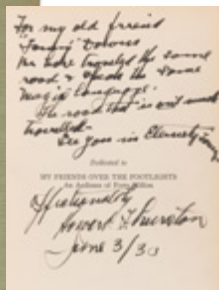 For my old friend
"Tommy" Downs
We have traveled the same
road & speak the same
magic language.
The road that isn't much
travelled -
See you in Eternity
Dedicated to
MY FRIENDS OVER THE FOOTLIGHTS
An Audience of Forty Million
Affectionately
Howard Thurston
June 3/30